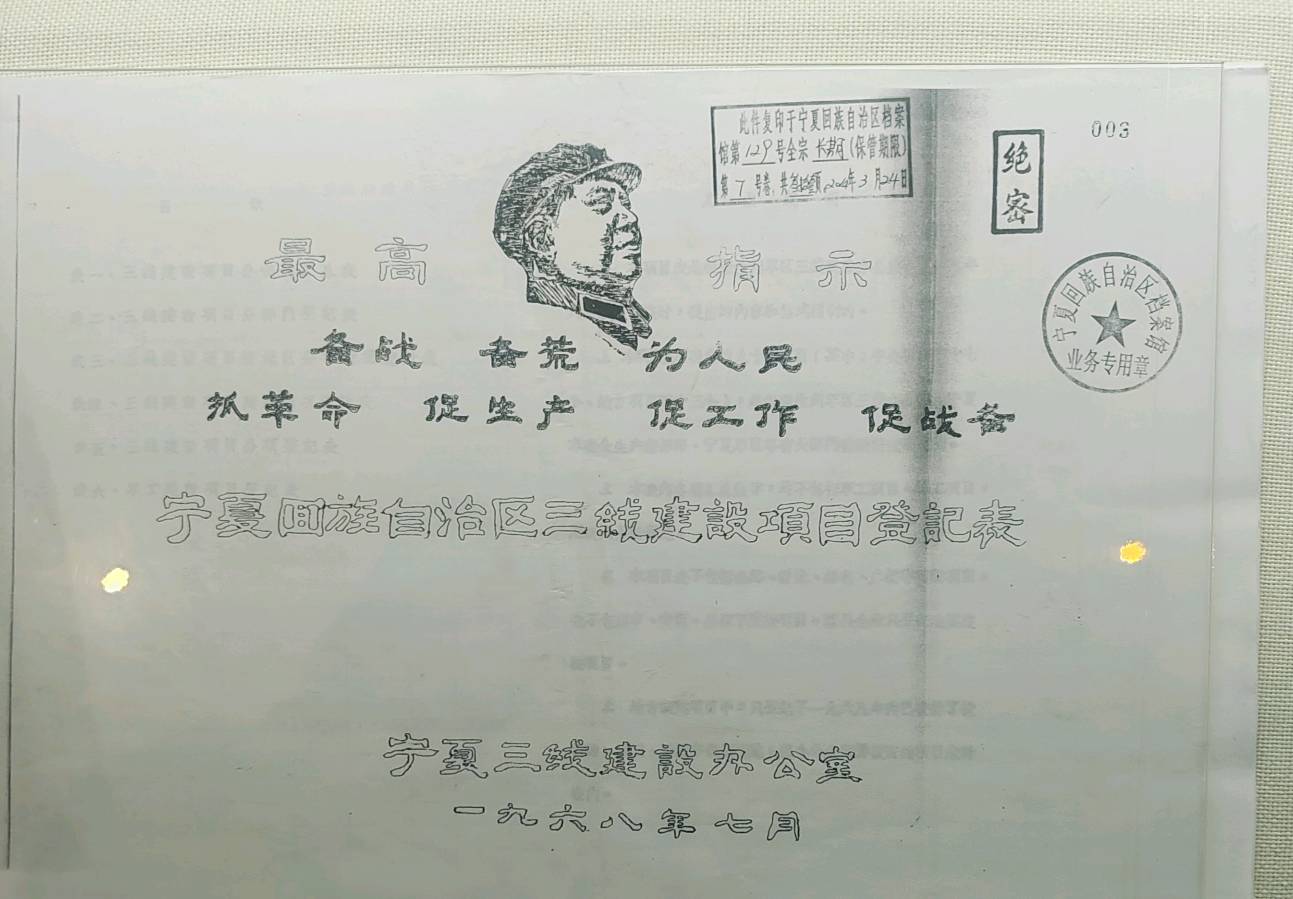 此件复印于宁夏回族自治区档案
馆第129号全宗 长期(保管期限)
第7号卷,共 年3月24日
绝密
003
宁夏回族自治区档案馆
业务专用章
最高指示
备战 备荒 为人民
抓革命 促生产 促工作 促战备
宁夏回族自治区三线建設項目登記表
宁夏三线建設办公室
一九六八年七月